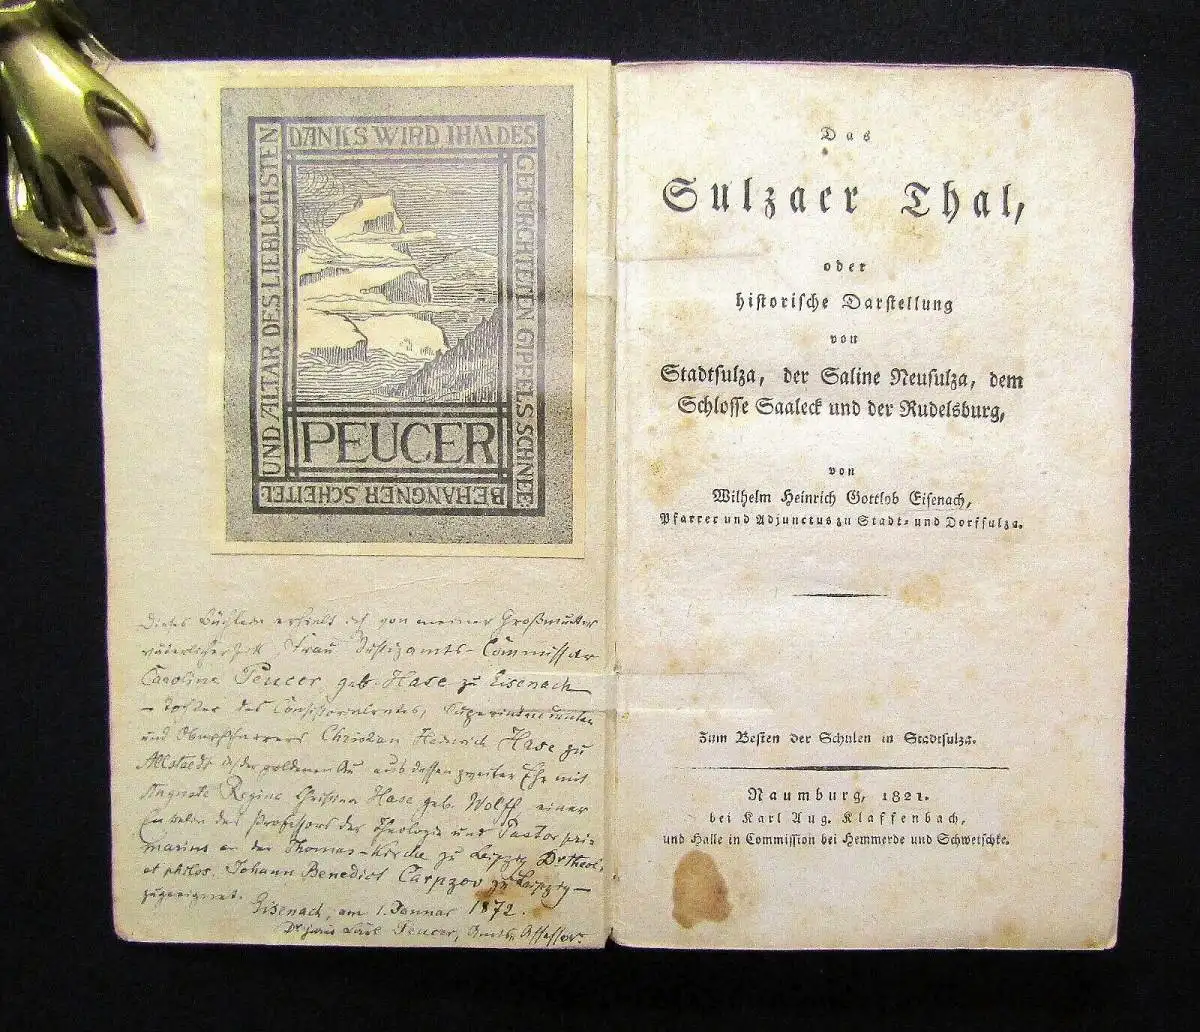 DANKS WIRD IHM DES
GEFÜRCHTETEN GIPFELS SCHNEE:
BEHANGNER SCHEITEL
UND ALTAR DES LIEBLICHSTEN
PEUCER
Dieses Büchlein erhielt ich von meiner Großmutter
väterlicherseits Frau Justizamts-Commissär
Caroline Peucer geb. Hase zu Eisenach
– Tochter des Consistorialrathes, Superintendenten
und Oberpfarrers Christian Heinrich Hase zu
Allstaedt in der goldenen Au aus dessen zweiter Ehe mit
Auguste Regine Christina Hase geb. Wolff, einer
Enkelin des Professors der Theologie und Pastor pri-
marius an der Thomas-Kirche zu Leipzig Dr theol.
et philos. Johann Benedict Carpzov zu Leipzig –
zugeeignet.
Eisenach, am 1. Januar 1872.
Carl Peucer, Amts-Assessor.
Das
Sulzaer Thal,
oder
historische Darstellung
von
Stadtsulza, der Saline Neusulza, dem
Schlosse Saaleck und der Rudelsburg,
von
Wilhelm Heinrich Gottlob Eisenach,
Pfarrer und Adjunctus zu Stadt- und Dorfsulza.
Zum Besten der Schulen in Stadtsulza.
Naumburg, 1821.
bei Karl Aug. Klaffenbach,
und Halle in Commission bei Hemmerde und Schwetschke.